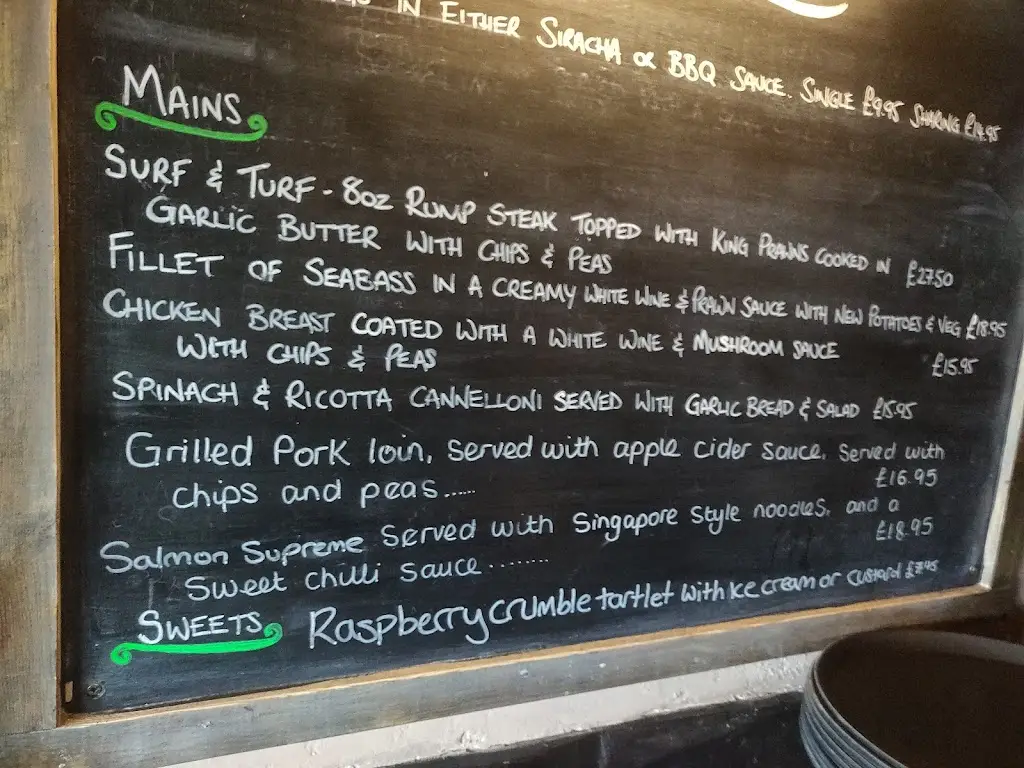 IN EITHER SIRACHA OR BBQ SAUCE. SINGLE £9.95 SHARING £14.95
MAINS
SURF & TURF - 8OZ RUMP STEAK TOPPED WITH KING PRAWNS COOKED IN
GARLIC BUTTER WITH CHIPS & PEAS £27.50
FILLET OF SEABASS IN A CREAMY WHITE WINE & PRAWN SAUCE WITH NEW POTATOES & VEG £18.95
CHICKEN BREAST COATED WITH A WHITE WINE & MUSHROOM SAUCE
WITH CHIPS & PEAS £15.95
SPINACH & RICOTTA CANNELLONI SERVED WITH GARLIC BREAD & SALAD £15.95
Grilled Pork loin, Served with apple cider sauce. Served with
chips and peas...... £16.95
Salmon Supreme Served with Singapore Style noodles, and a
Sweet chilli sauce........ £18.95
SWEETS Raspberry crumble tartlet with Ice cream or custard